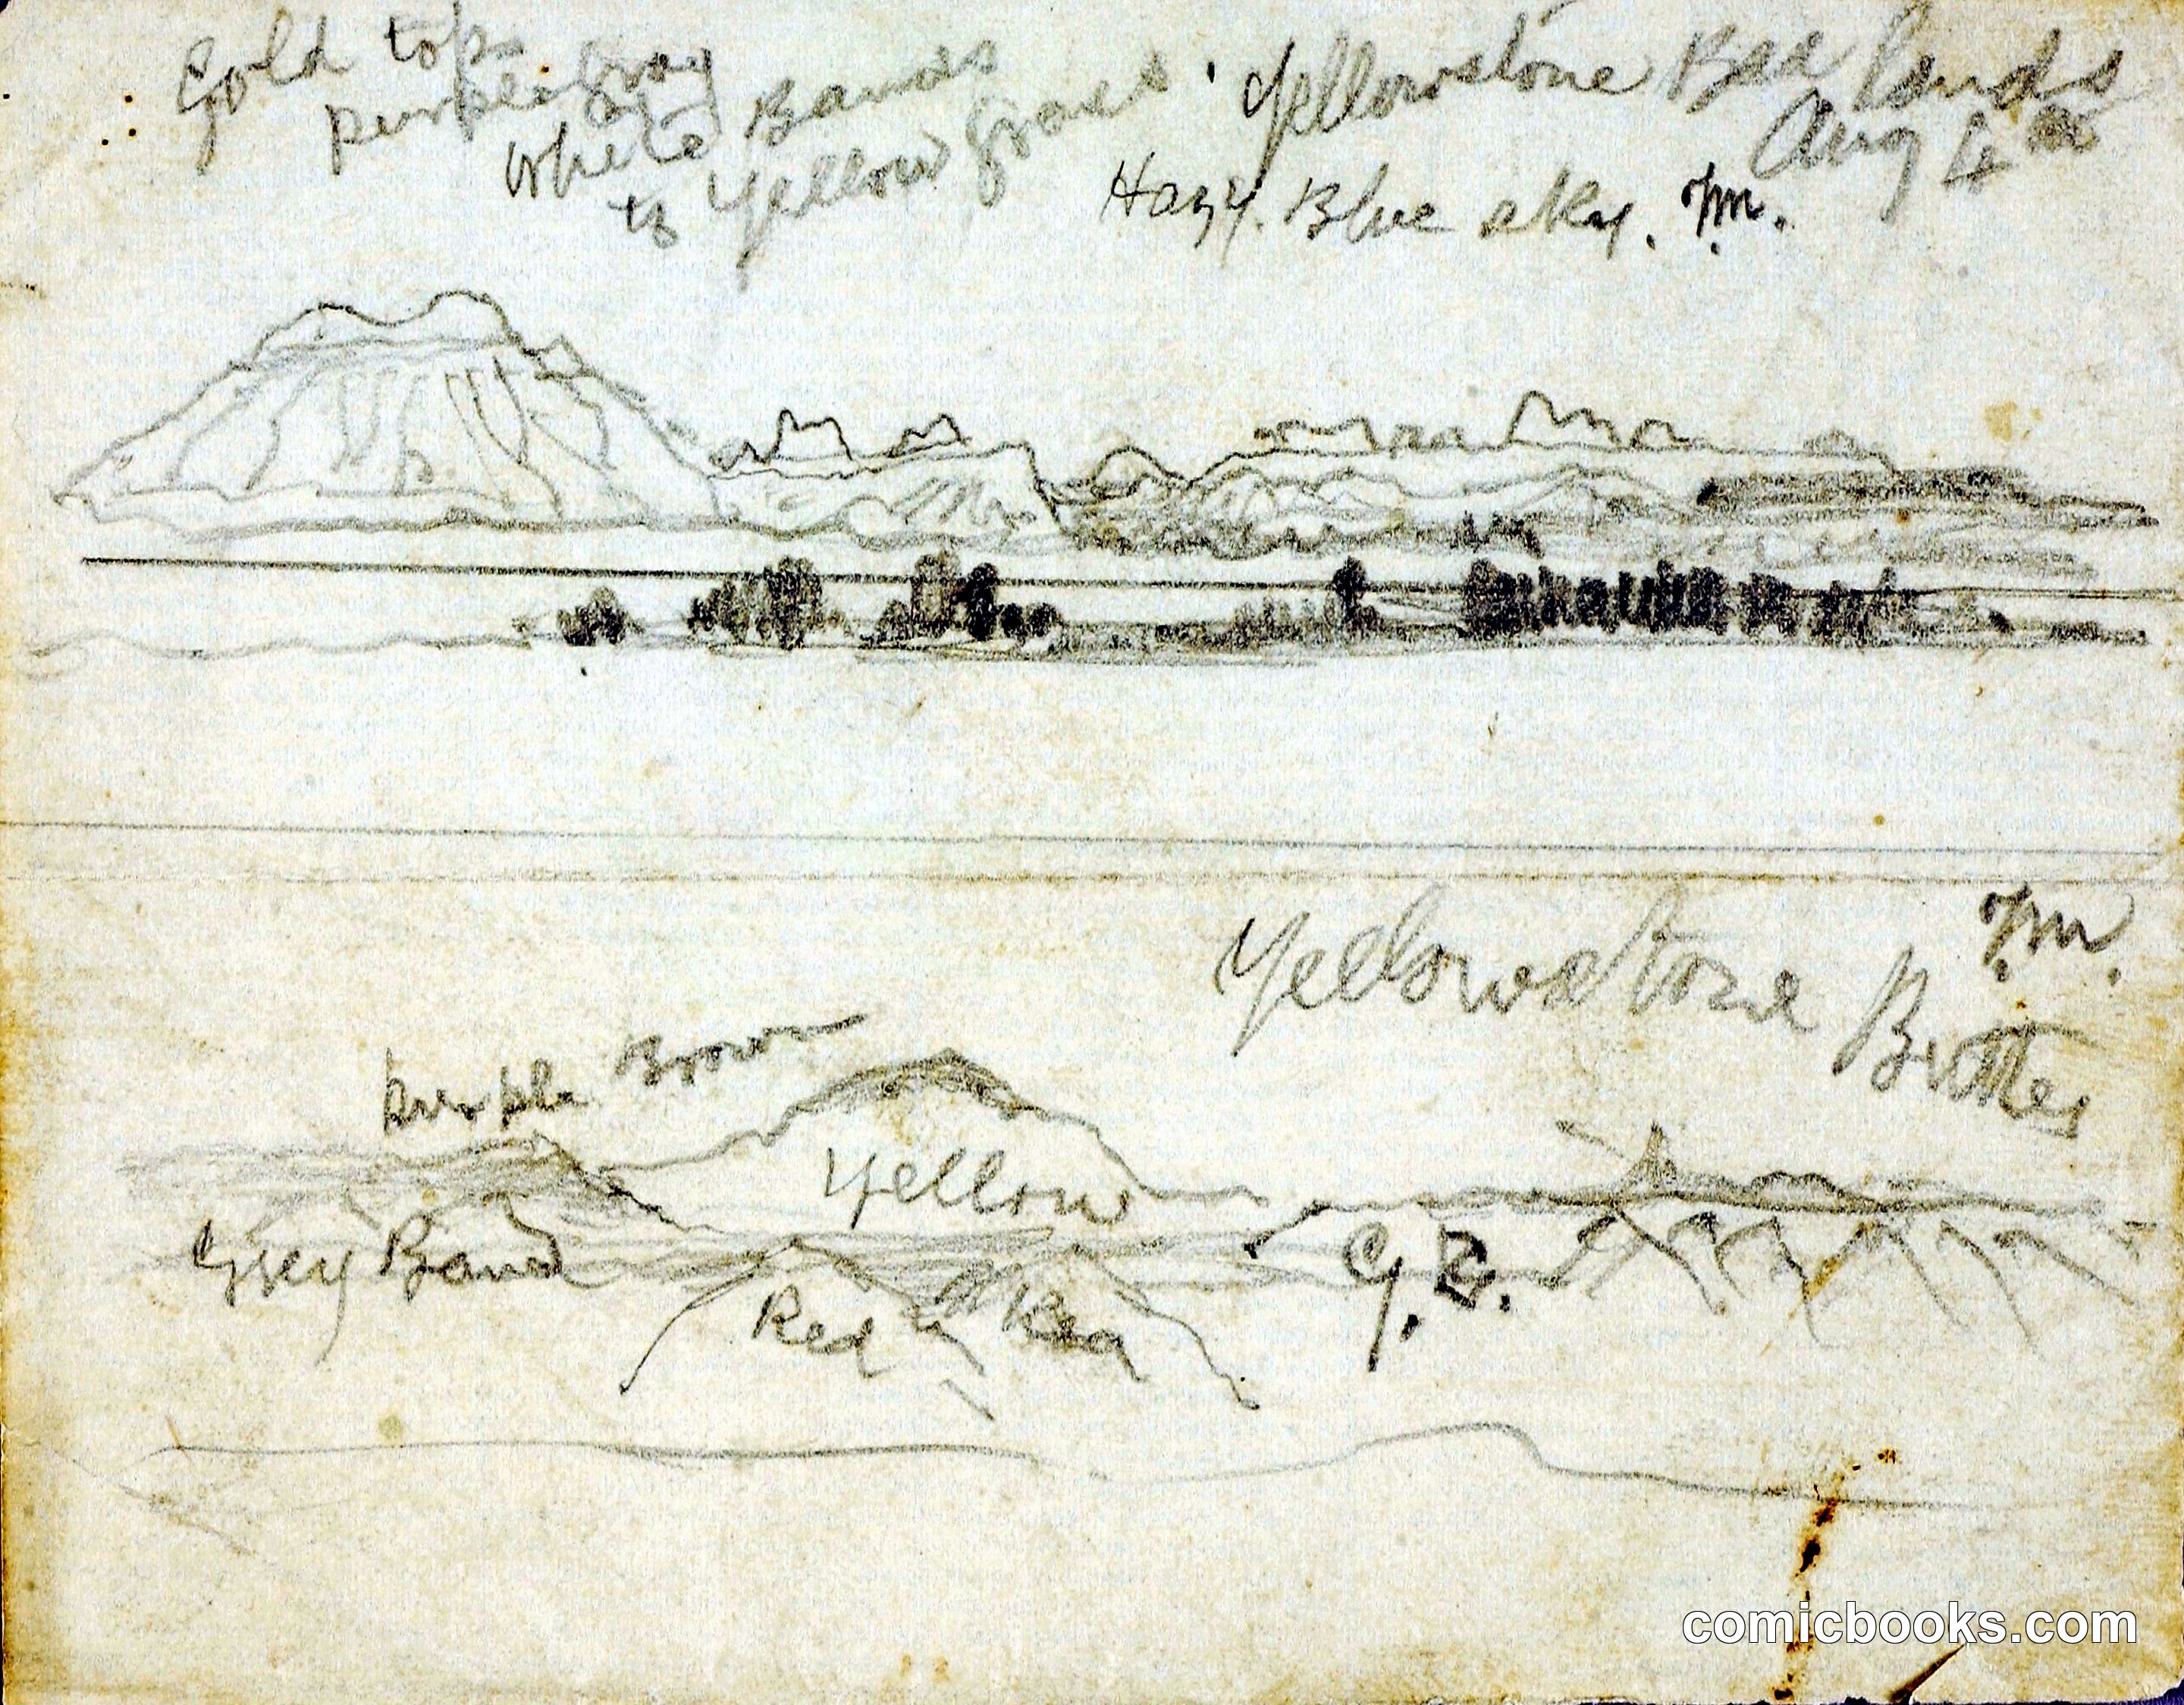 Gold top
purple Gray
White Bands
to Yellow Grass
Yellowstone Bad Lands
Aug 4th
Hazy. Blue sky. T.M.
T.M.
Yellowstone Buttes
purple Brown
Yellow
Grey Band
G.B.
Red Red
comicbooks.com